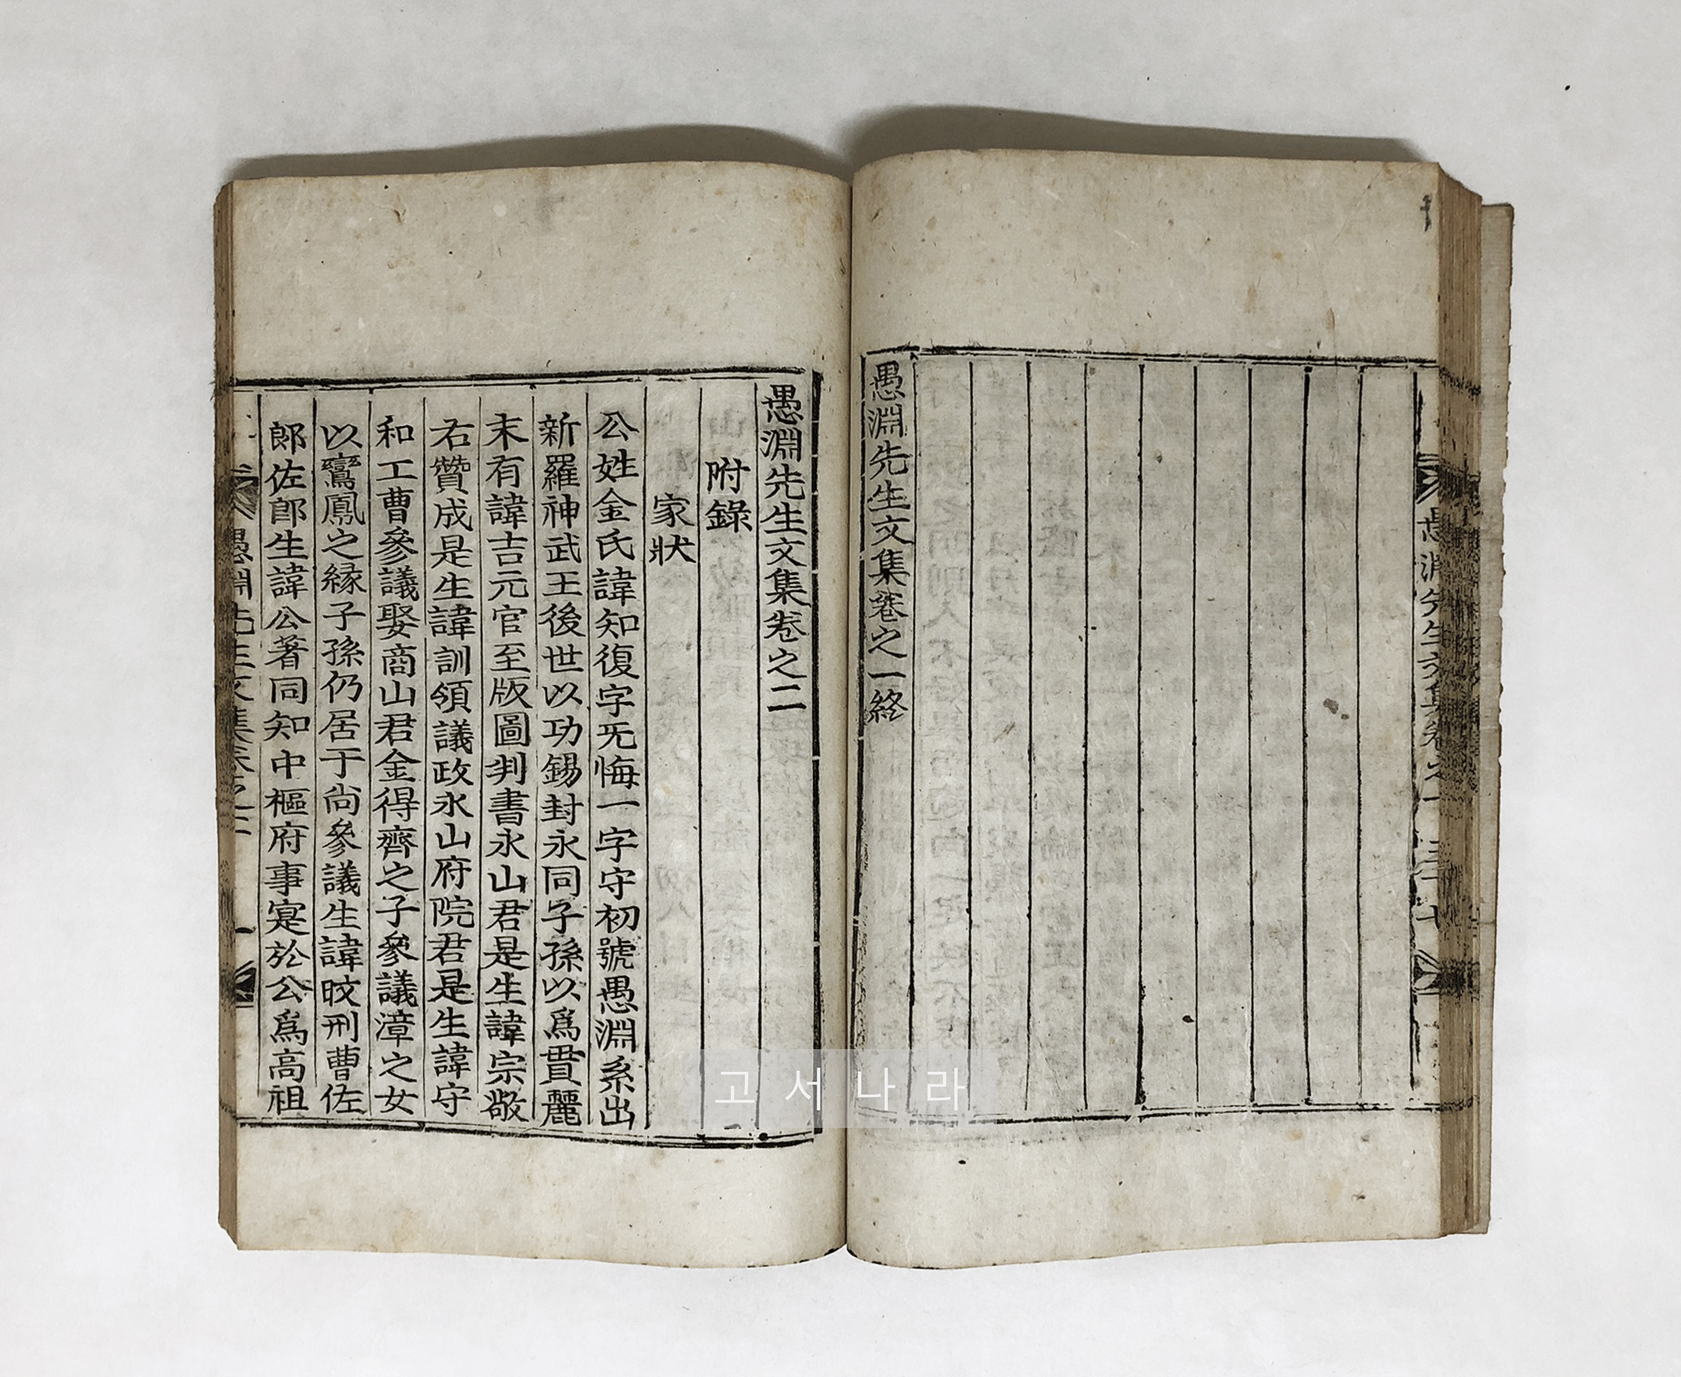 愚淵先生文集卷之一終
愚淵先生文集卷之二
附錄
家狀
公姓金氏諱知復字旡悔一字守初號愚淵系出
新羅神武王後世以功錫封永同子孫以爲貫麗
末有諱吉元官至版圖判書永山君是生諱宗敬
右贊成是生諱訓領議政永山府院君是生諱守
和工曹參議娶商山君金得齊之子參議漳之女
以鸞鳳之緣子孫仍居于尙參議生諱旼刑曹佐
郞佐郞生諱公著同知中樞府事寔於公爲高祖
愚淵先生文集卷之二 一
고서나라